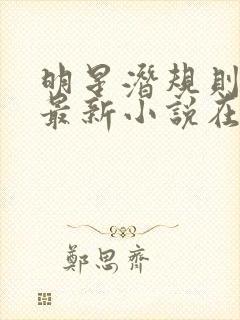 明星潛規則
最新小說在
鄭思齊